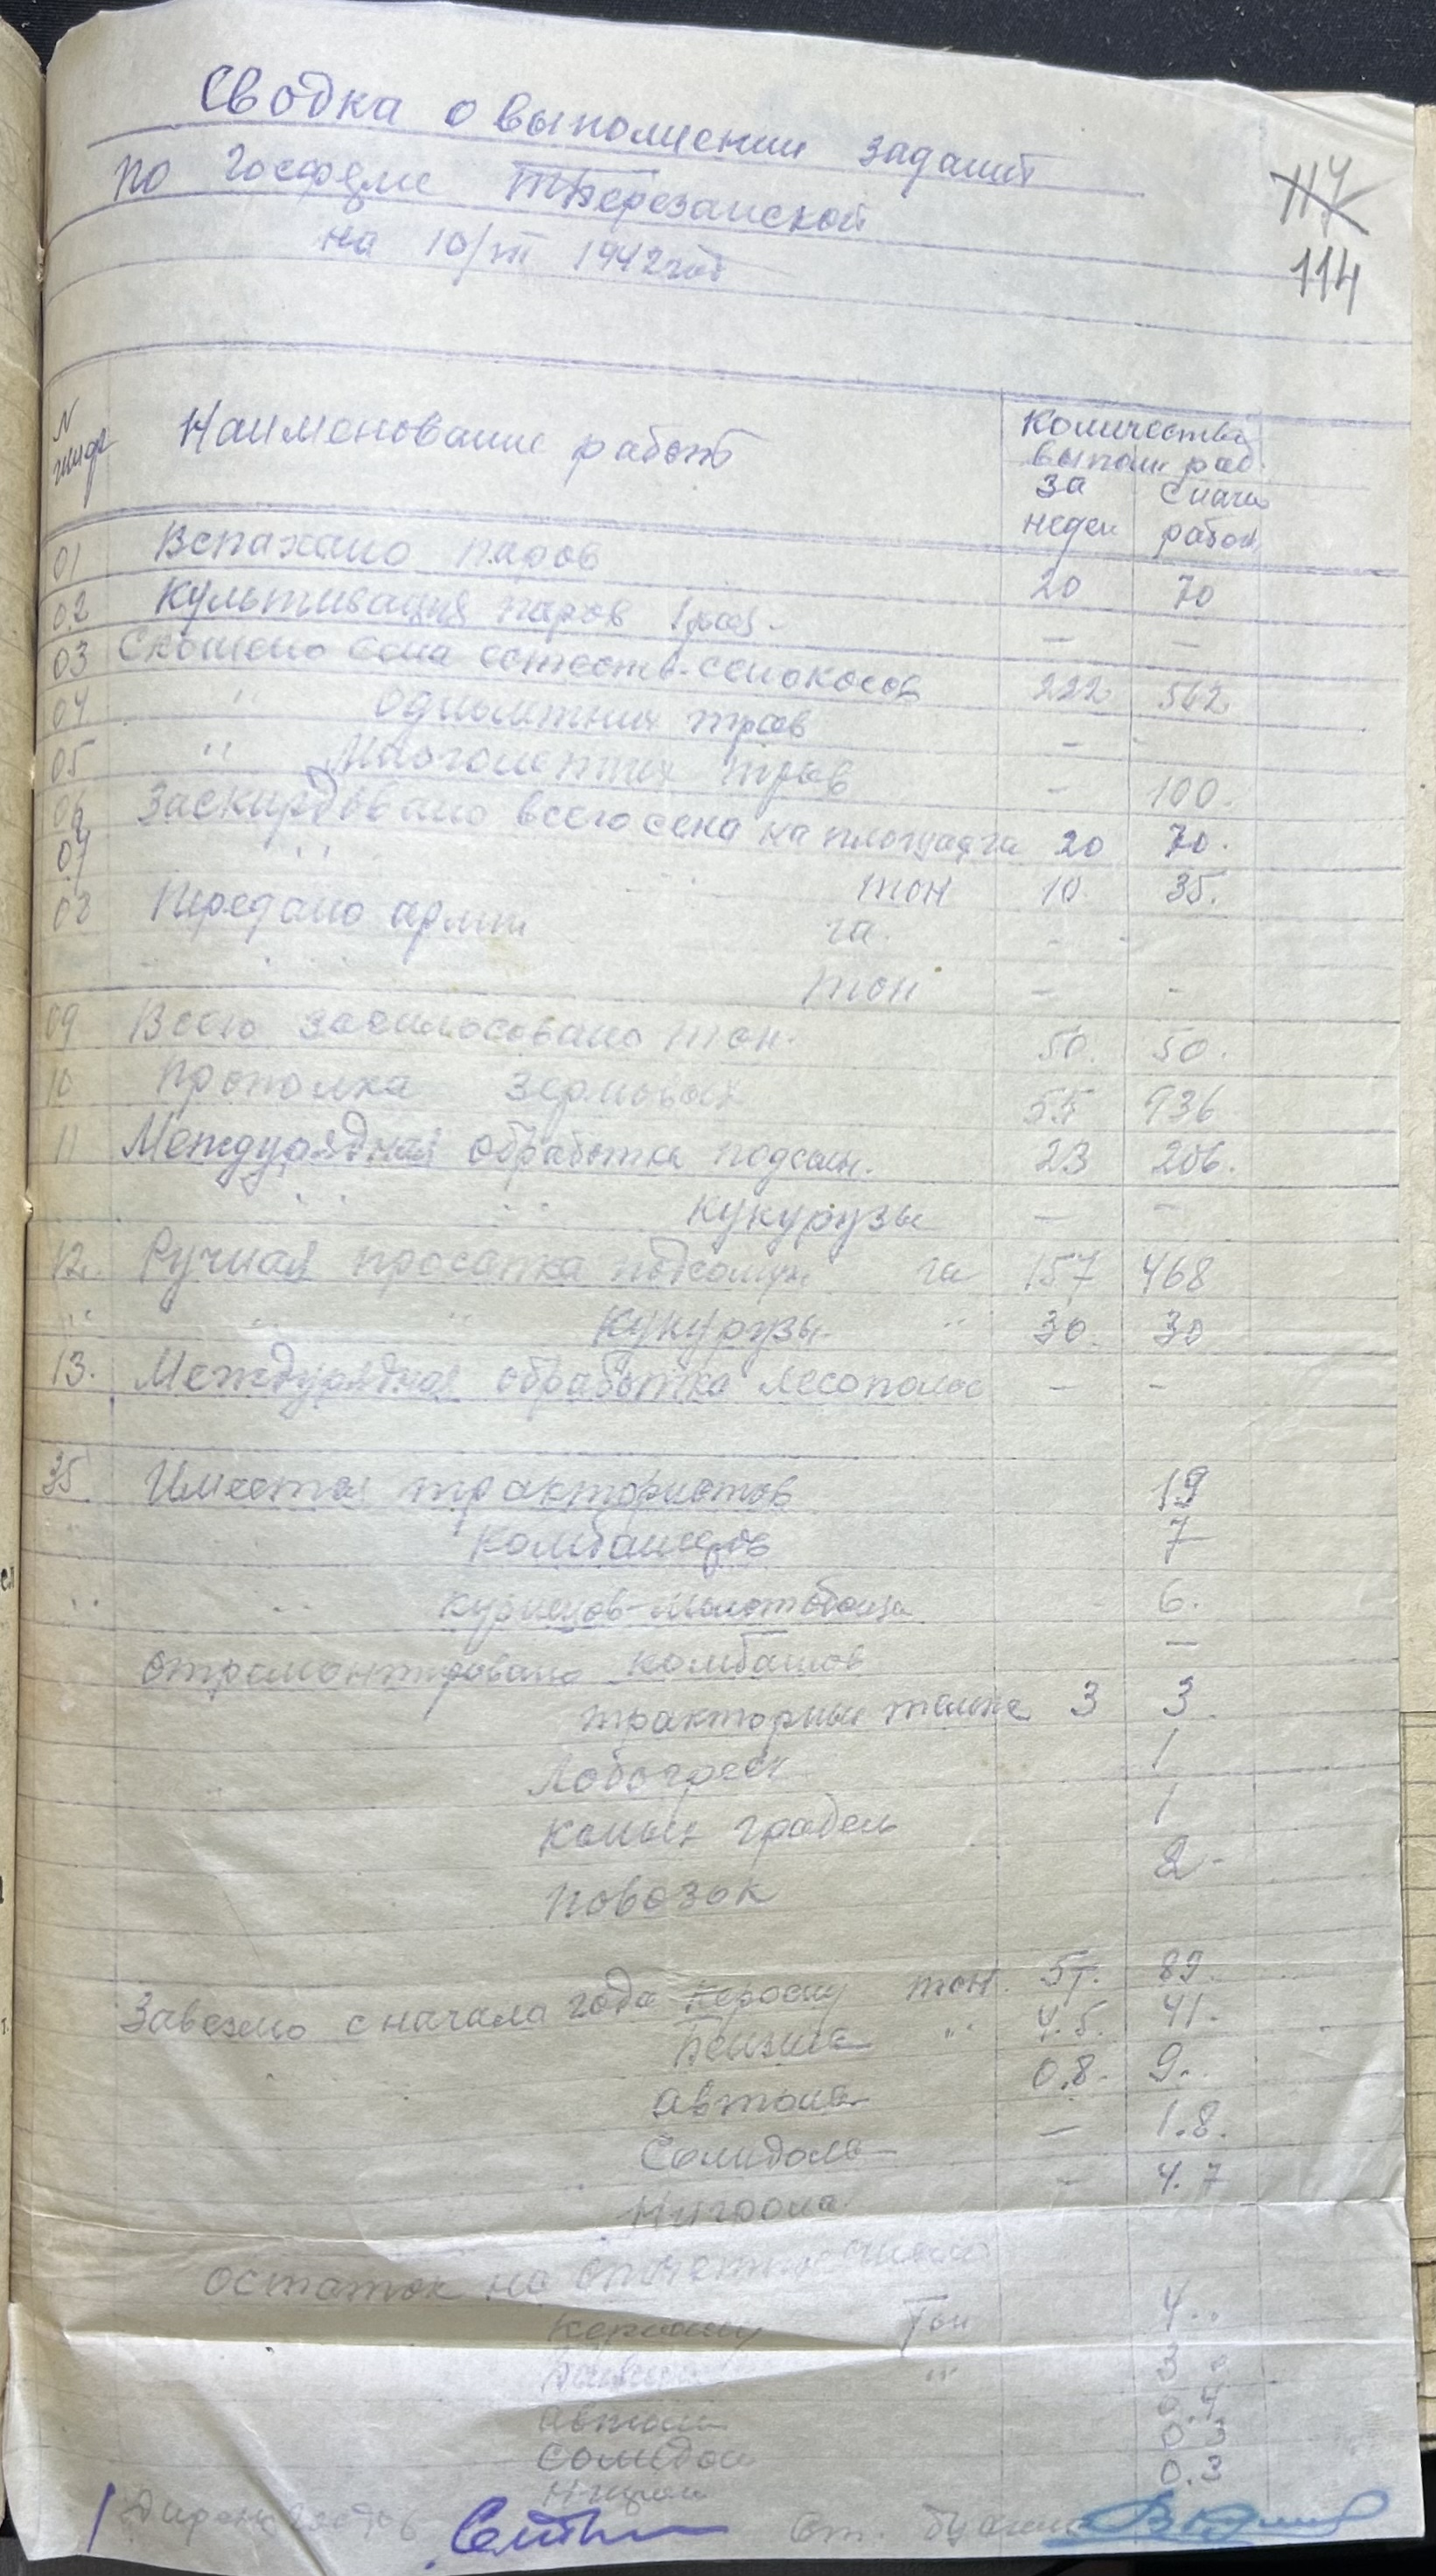 Сводка о выполнении заданий
по Госферме Березанской
на 10/VII 1942 год
117
114
N
Наименование работ
Количества
выполн раб.
за недел
с нача работ
01 Вспахано паров 20 70
02 Культивация паров 1 раз. — —
03 Скошено сена естеств. сенокосов 222 562
04 " Однолетних трав - -
05 " Многолетних трав - 100.
06 Заскирдовано всего сена на площад га 20 70.
07 " тон 10. 35.
08 Передано армии га. - -
тон - -
09 Всего засилосовано тон. 50. 50.
10 Прополка зерновых 55 936
11 Междурядная обработка подсолн. 23 206.
" " кукурузы — —
12. Ручная просапка подсолнух га 157 468
" " " кукурузы. " 30. 30
13. Междурядная обработка лесополос - -
35 Имеется трактористов 19
" Комбайнеров 7
" " кузнецов-молотобойца 6.
отремонтировано комбайнов —
тракторных 3 3
Лобогреек 1
Конных грабель 1
Повозок 2-
Завезено с начала года керосину тон. 57. 89.
Бензина " 4.5. 41.
Автола 0.8. 9.
Солидола — 1.8.
Нигрола - 4.7
остаток на отчетное число
Керосину Тон 4..
Бензин " 3
Автола 0.4
Солидол 0.3
Нигрол 0.3
Ст. бухгал